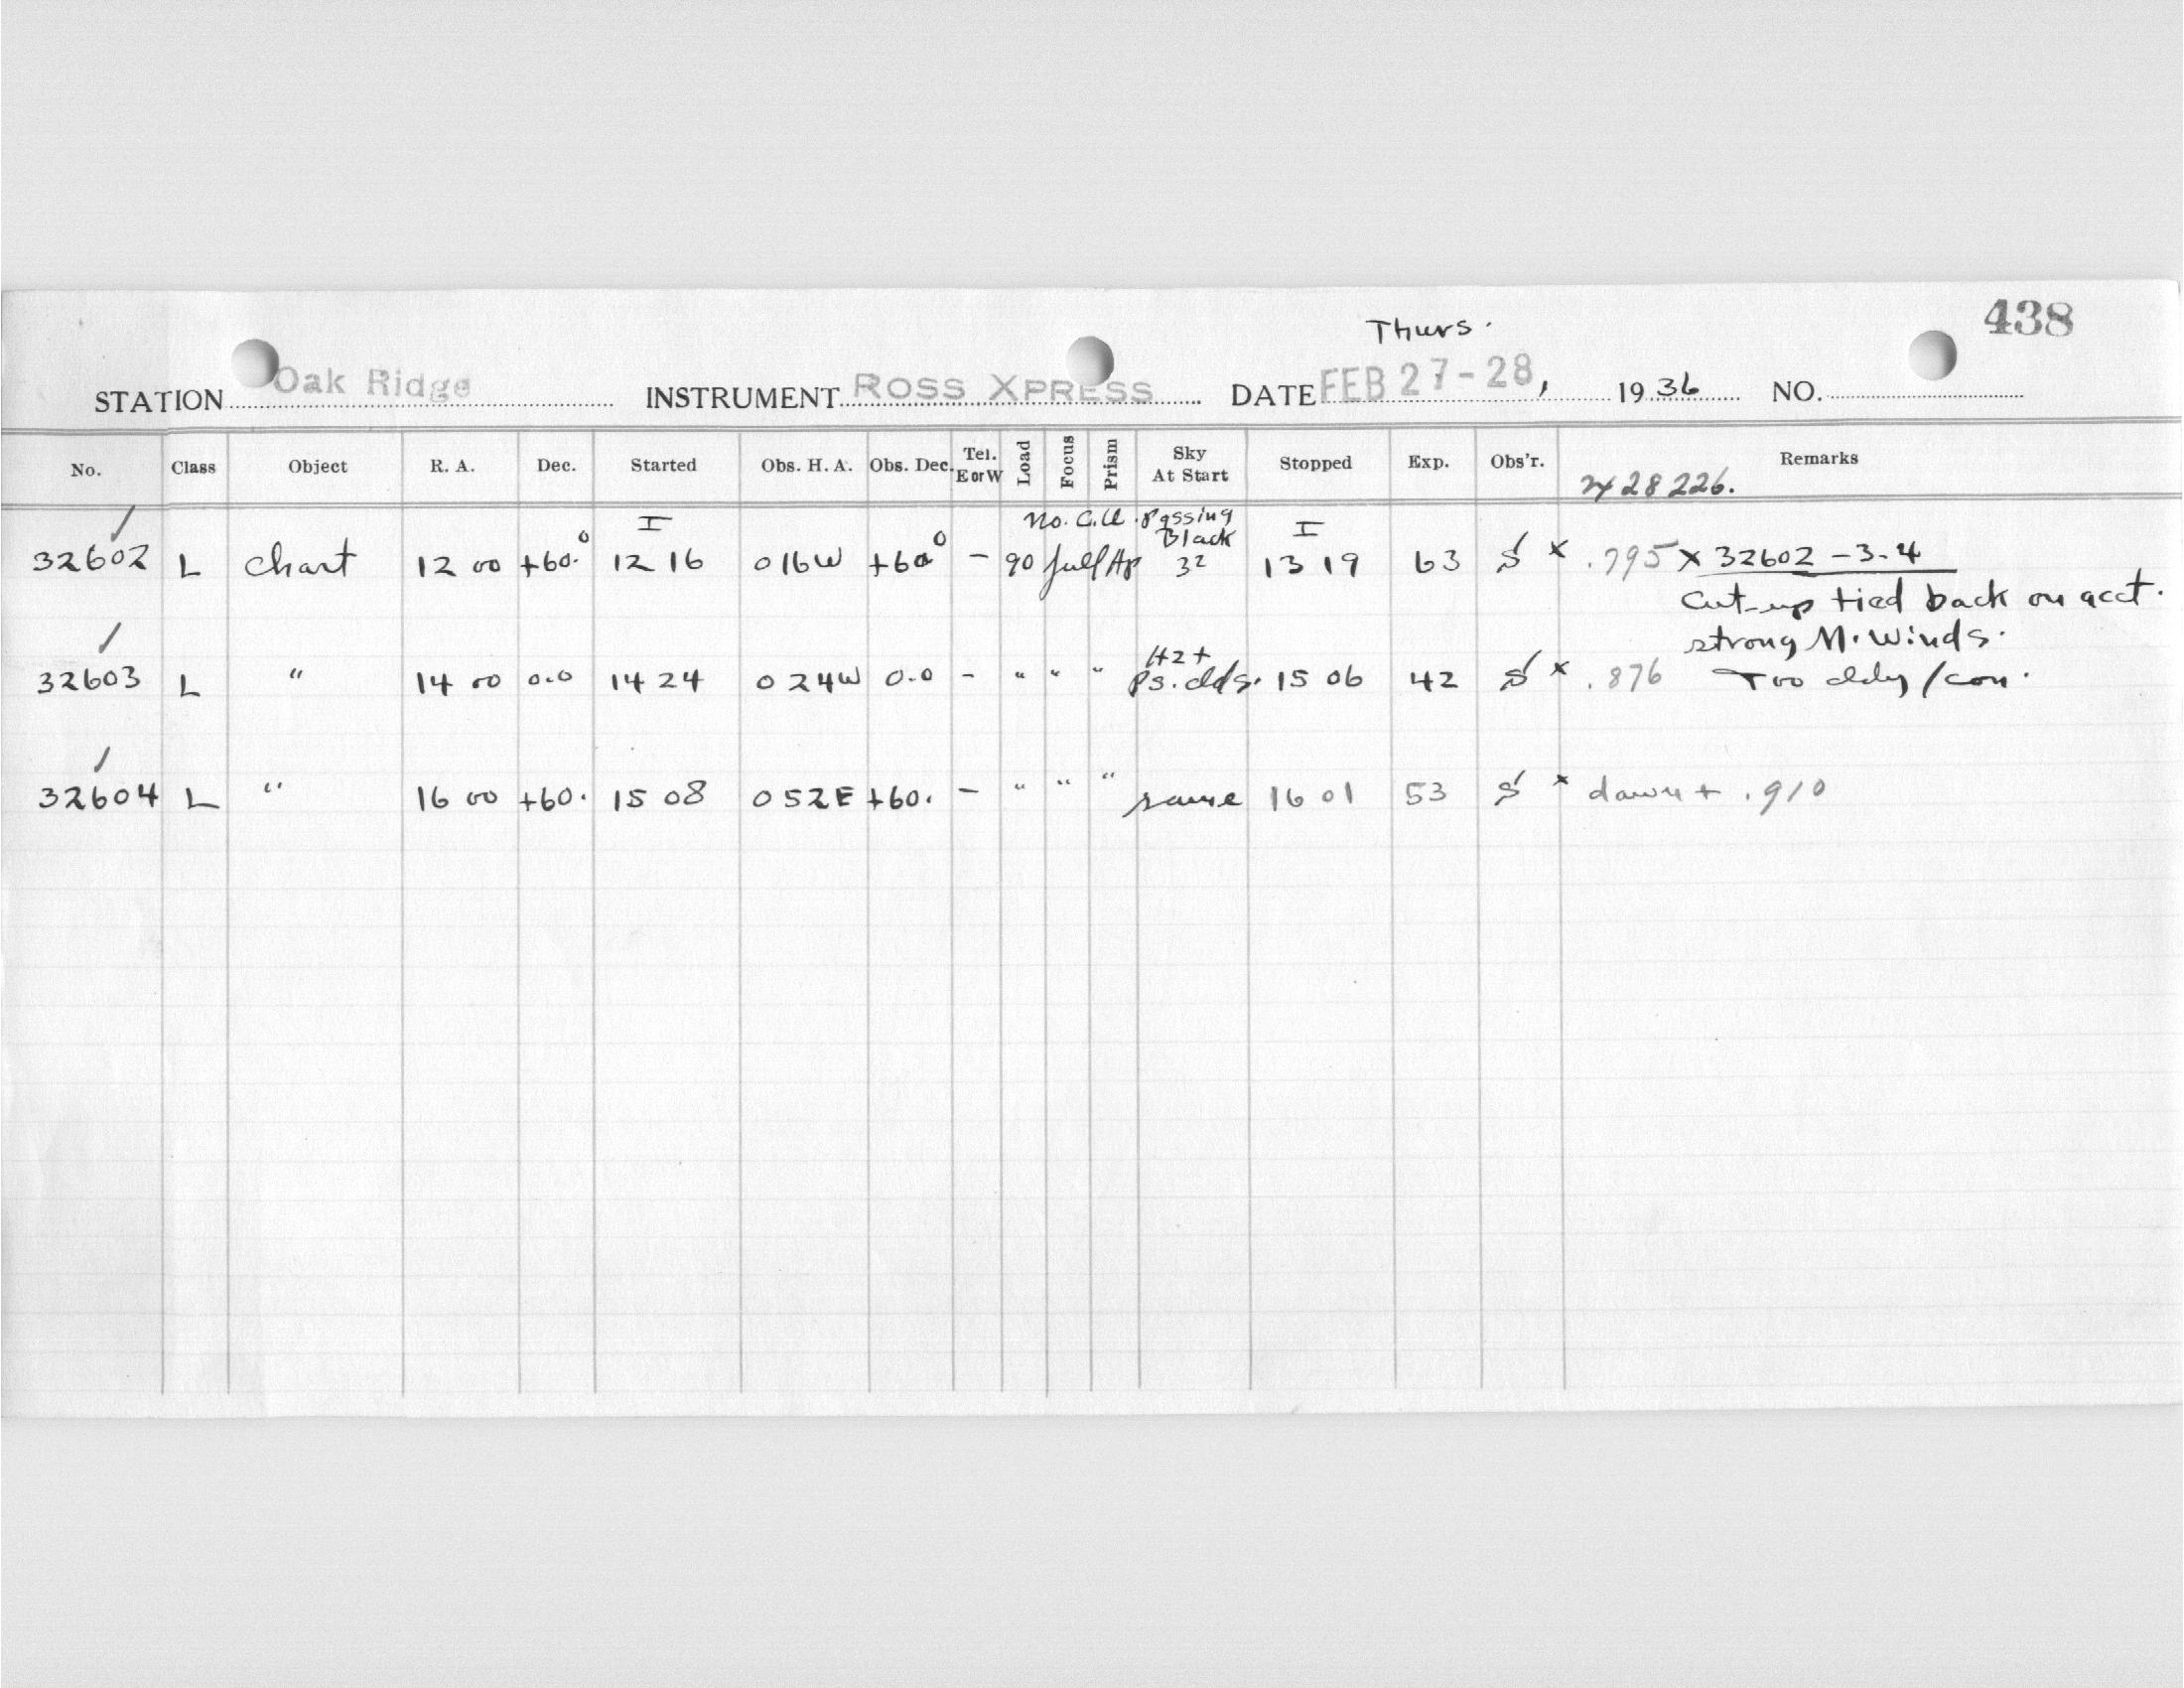 438
Thurs.
STATION Oak Ridge INSTRUMENT ROSS XPRESS DATE FEB 27-28, 1936 NO.
No. Class Object R. A. Dec. Started Obs. H. A. Obs. Dec. Tel. E or W Load Focus Prism Sky At Start Stopped Exp. Obs'r. Remarks
28226.
32602 L chart 12 00 +60.° I 12 16 0 16W +60° - 90 full Ap Passing Black 32 I 13 19 63 S x .795 x 32602-3-4
Cut-up tied back on acct.
strong N. Winds.
32603 L " 14 00 0.0 14 24 0 24W 0.0 - " " " Hz+ Ps. clds. 15 06 42 S x .876 Too cldy/con.
32604 L " 16 00 +60. 15 08 0 52E +60. - " " " same 16 01 53 S x dawn + .910